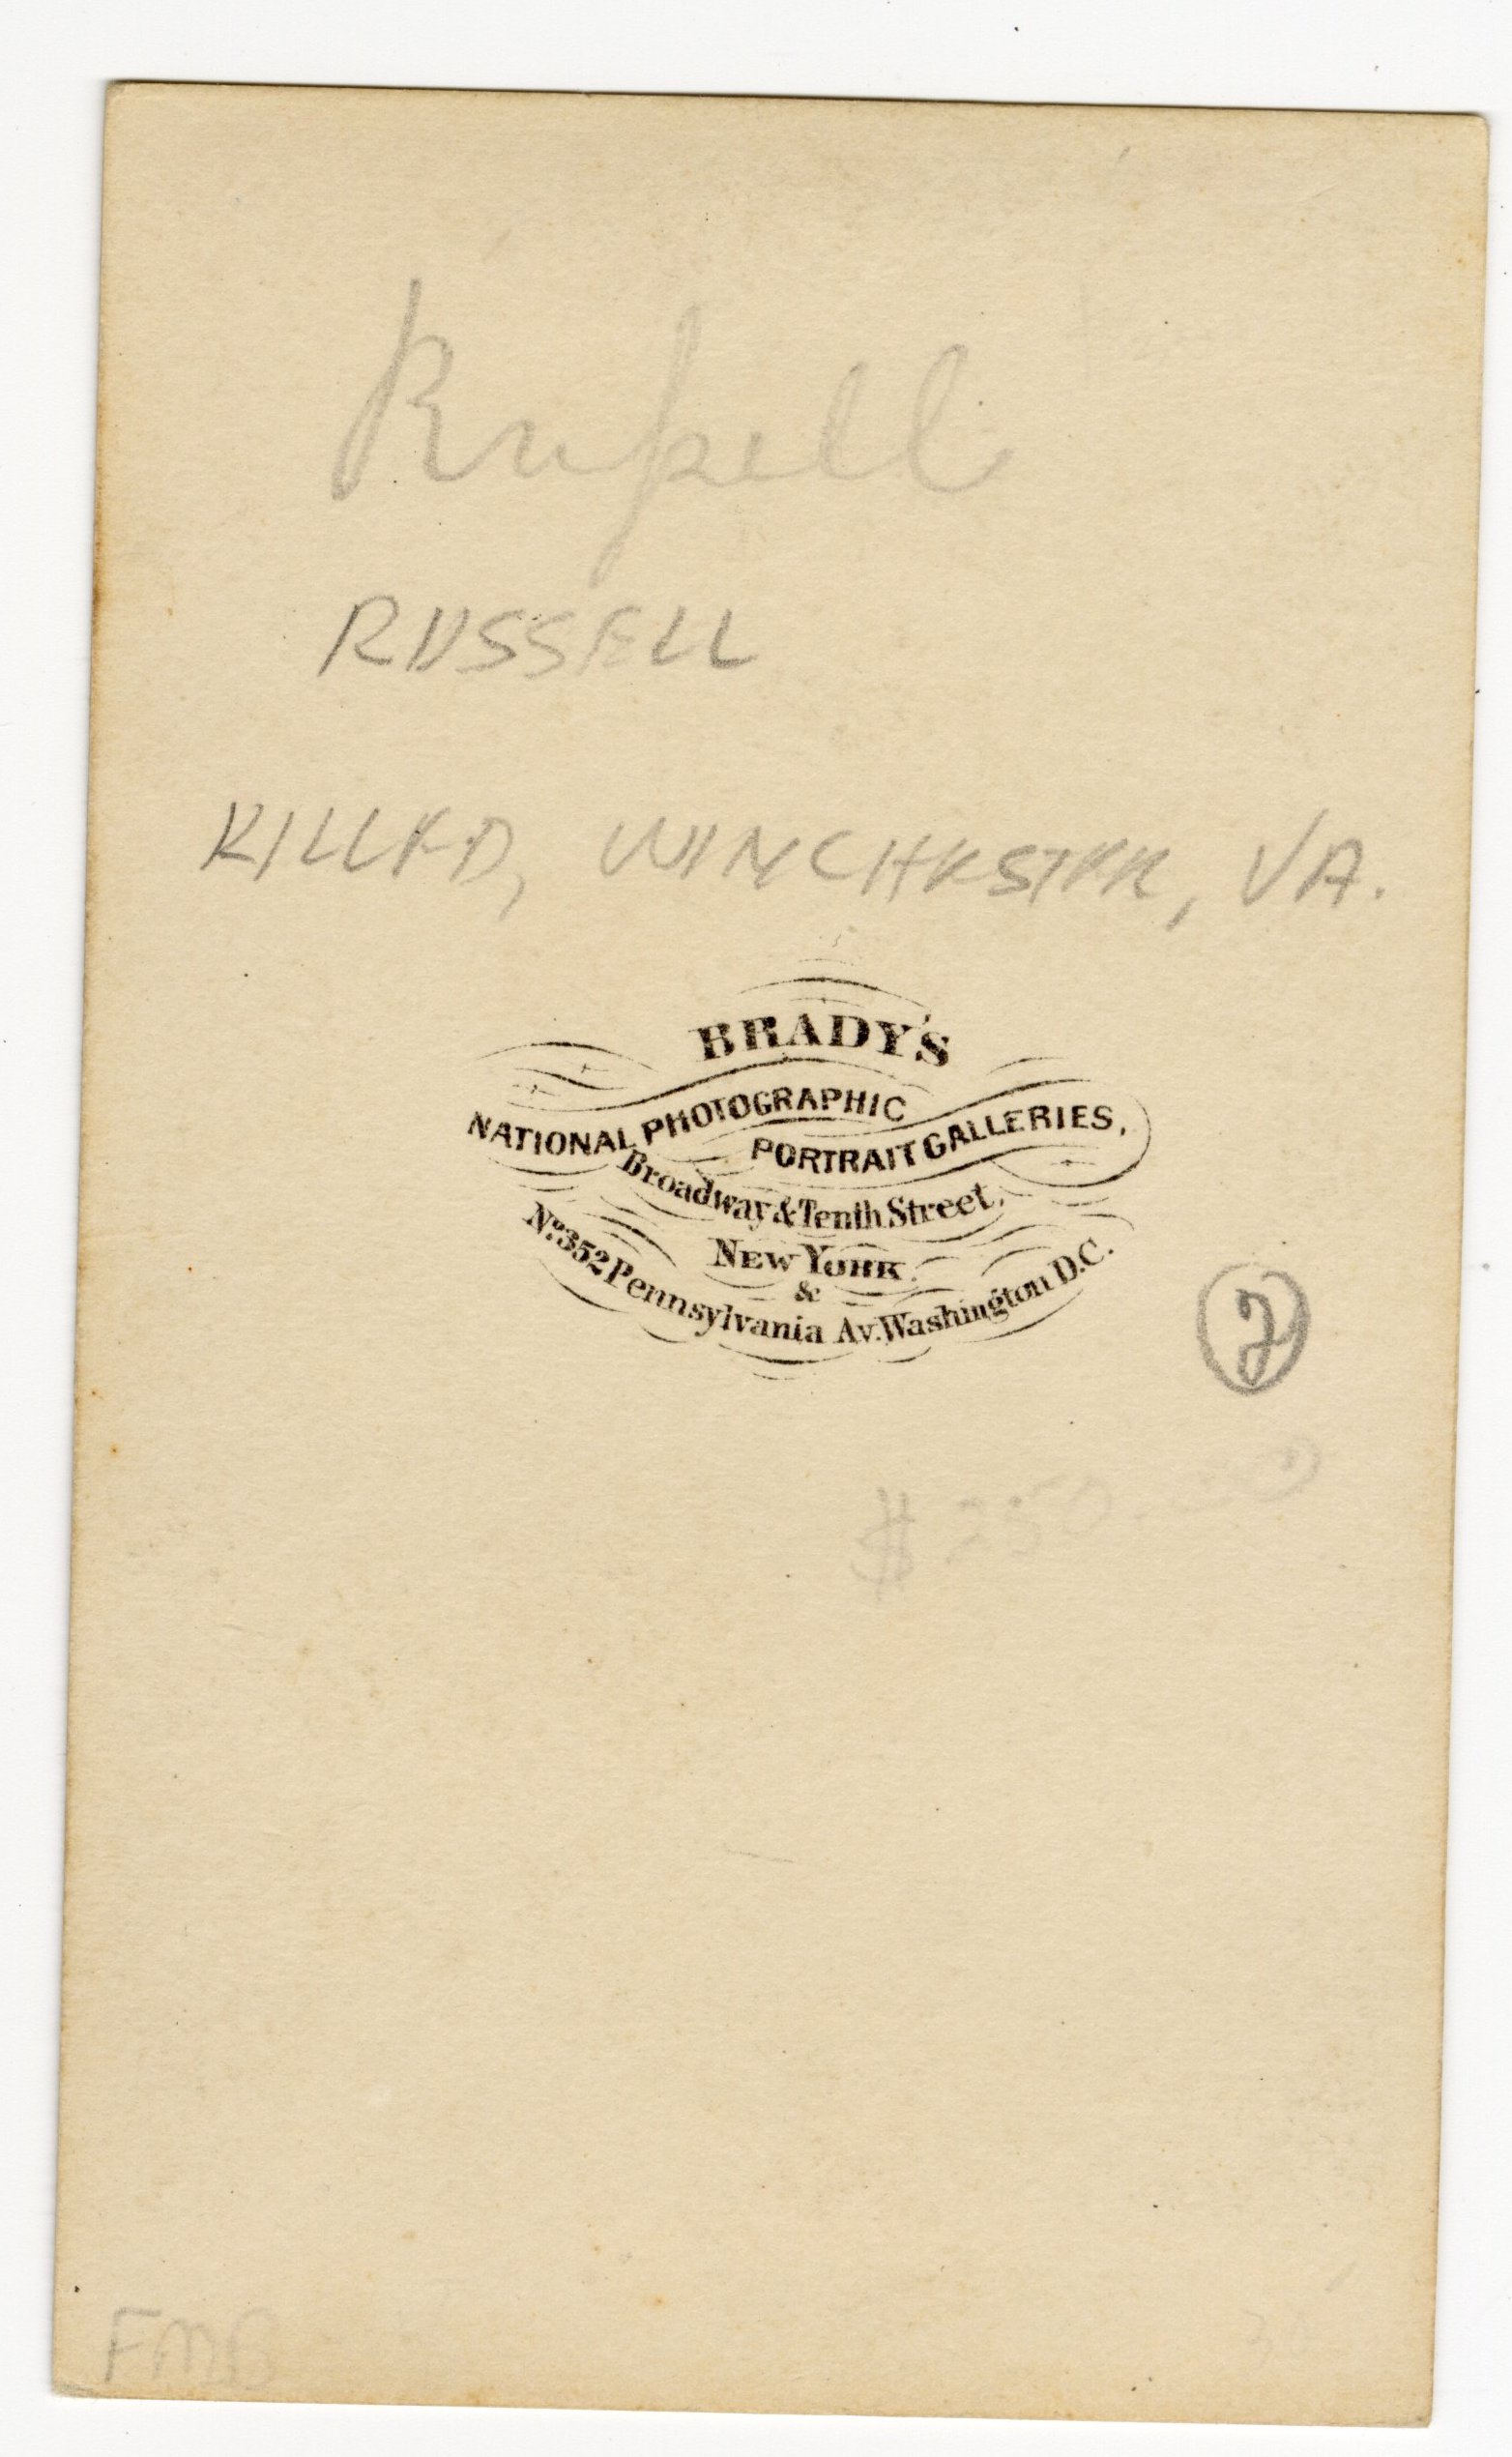 Rußell
RUSSELL
KILLED, WINCHESTER, VA.
BRADY'S
NATIONAL PHOTOGRAPHIC
PORTRAIT GALLERIES,
Broadway & Tenth Street,
NEW YORK.
&
No. 352 Pennsylvania Av. Washington D.C.
2
$250
FMB